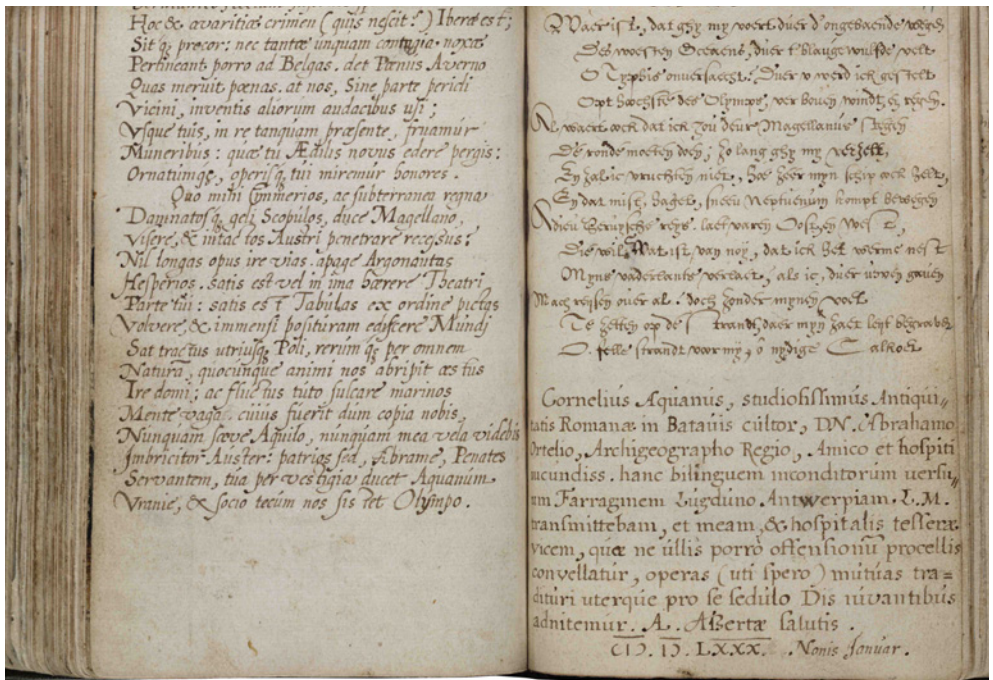 Hoc & avaritiæ crimen (quis nescit?) Iberæ est;
Sit q; precor: nec tantæ unquam contagia noxæ
Pertineant porro ad Belgas. det Pœnus Averno
Quas meruit pœnas. at nos, Sine parte pericli
Vicini, inventis aliorum audacibus usi;
Vsque tuis, in re tanquam præsente, fruamur
Muneribus: quæ tu Ædilis novus edere pergis:
Ornatumqȝ, operisqȝ tui miremur honores.
Quo mihi Cimmerios, ac subterranea regna
Damnatosqȝ geli Scopulos, duce Magellano,
Visere, & intactos Austri penetrare recessus?
Nil longas opus ire vias. apage Argonautas
Hesperios. satis est vel in ima hærere Theatri
Parte tui: satis est Tabulas ex ordine pictas
Volvere, & immensi posituram ediscere Mundi
Sat tractus utriusqȝ Poli, rerum qȝ per omnem
Naturã, quocunque animi nos abripit æstus
Ire domi; ac fluctus tuto sulcare marinos
Mente vaga. cuius fuerit dum copia nobis,
Nunquam sæve Aquilo, nunquam mea vela videbis
Imbricitor Auster: patrios sed, Abrame, Penates
Servantem, tua per vestigia ducet Aquanum
Vranie, & socio tecum nos sistet Olympo.
Waer ist, dat ghy my voert duer d'ongebaende wegen
Des woesten Oceaens, duer t'blauge wulfde velt
O Typhis onversaecht: Duer u werd ick gestelt
Opt hoochste des Olymps, ver boven windt en regen.
Al waert oock dat ick zou deur Magellanus
De ronde moeten doen; zo lang ghy my verzelt,
En zal ic vruchten niet, hoe zeer myn schip oock helt,
En dat mist, hagel, sneeu Neptunum kompt bewegen
Adieu reys. laet varen Oost, en West,
Die wil. Wat ist van noy, dat ick het werme nest
Myns vaderlants verlaet, als ic, duer uwen gaven
Mach reysen over al: Doch zonder mynen voet
Te zetten op de Strandt, daer mijn haer leyt begraven
O felle strandt voor my, ô nydige Calkoet
Cornelius Aquanus, studiosissimus Antiqui„
tatis Romanæ in Batauis cultor, DN. Abrahamo
Ortelio, Archigeographo Regio, Amico et hospiti
iucundiss. hanc bilinguem inconditorum versu„
um Farraginem Lugduno Antwerpiam. L.M.
transmittebam, et meam, & hospitalis tesseræ
vicem, quæ ne ullis porro offensionũ procellis
convellatur, operas (uti spero) mutuas tra=
dituri uterque pro se sedulo Dis iuvantibus
adnitemur. A. Assertæ salutis.
CIƆ. IƆ. LXXX. Nonis Januar.